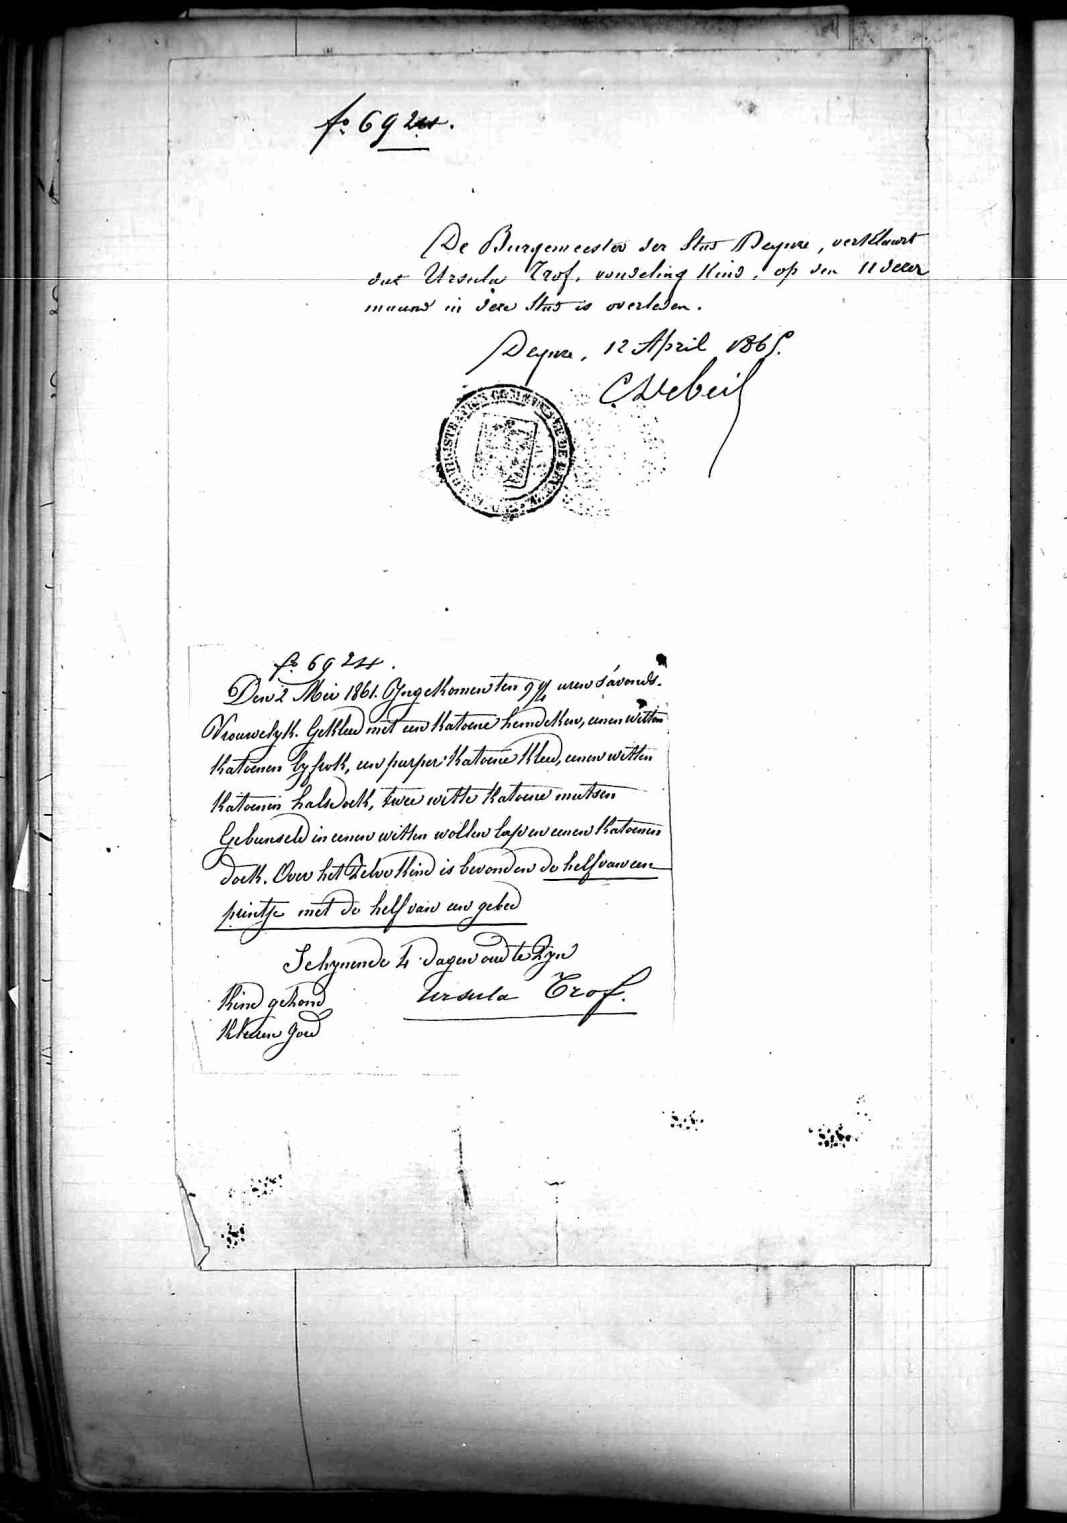 fo 6924.
De Burgemeester der Stad Deynze, verklaart
dat Ursula Trof, vondeling kind, op den 11 dezer
maand in deze Stad is overleden.
Deynze, 12 April 1865.
fo 6924.
Den 2 Mei 1861. Yngekomen ten 9 1/4 uren s'avonds.
Vrouwelyk. Gekleed met een Katoene hemdeken, eenen witten
Katoenen lyfrok, een purper Katoene Kleed, eenen witten
Katoenen halsdoek, twee witte Katoene mutsen
Gebunseld in eenen witten wollen lap en eenen Katoenen
doek. Over het Zelve Kind is bevonden de helf van een
printje met de helf van een gebed
Schynende 4 dagen oud te Zyn
Kind gezond Ursula Trof.
Kleeren goed